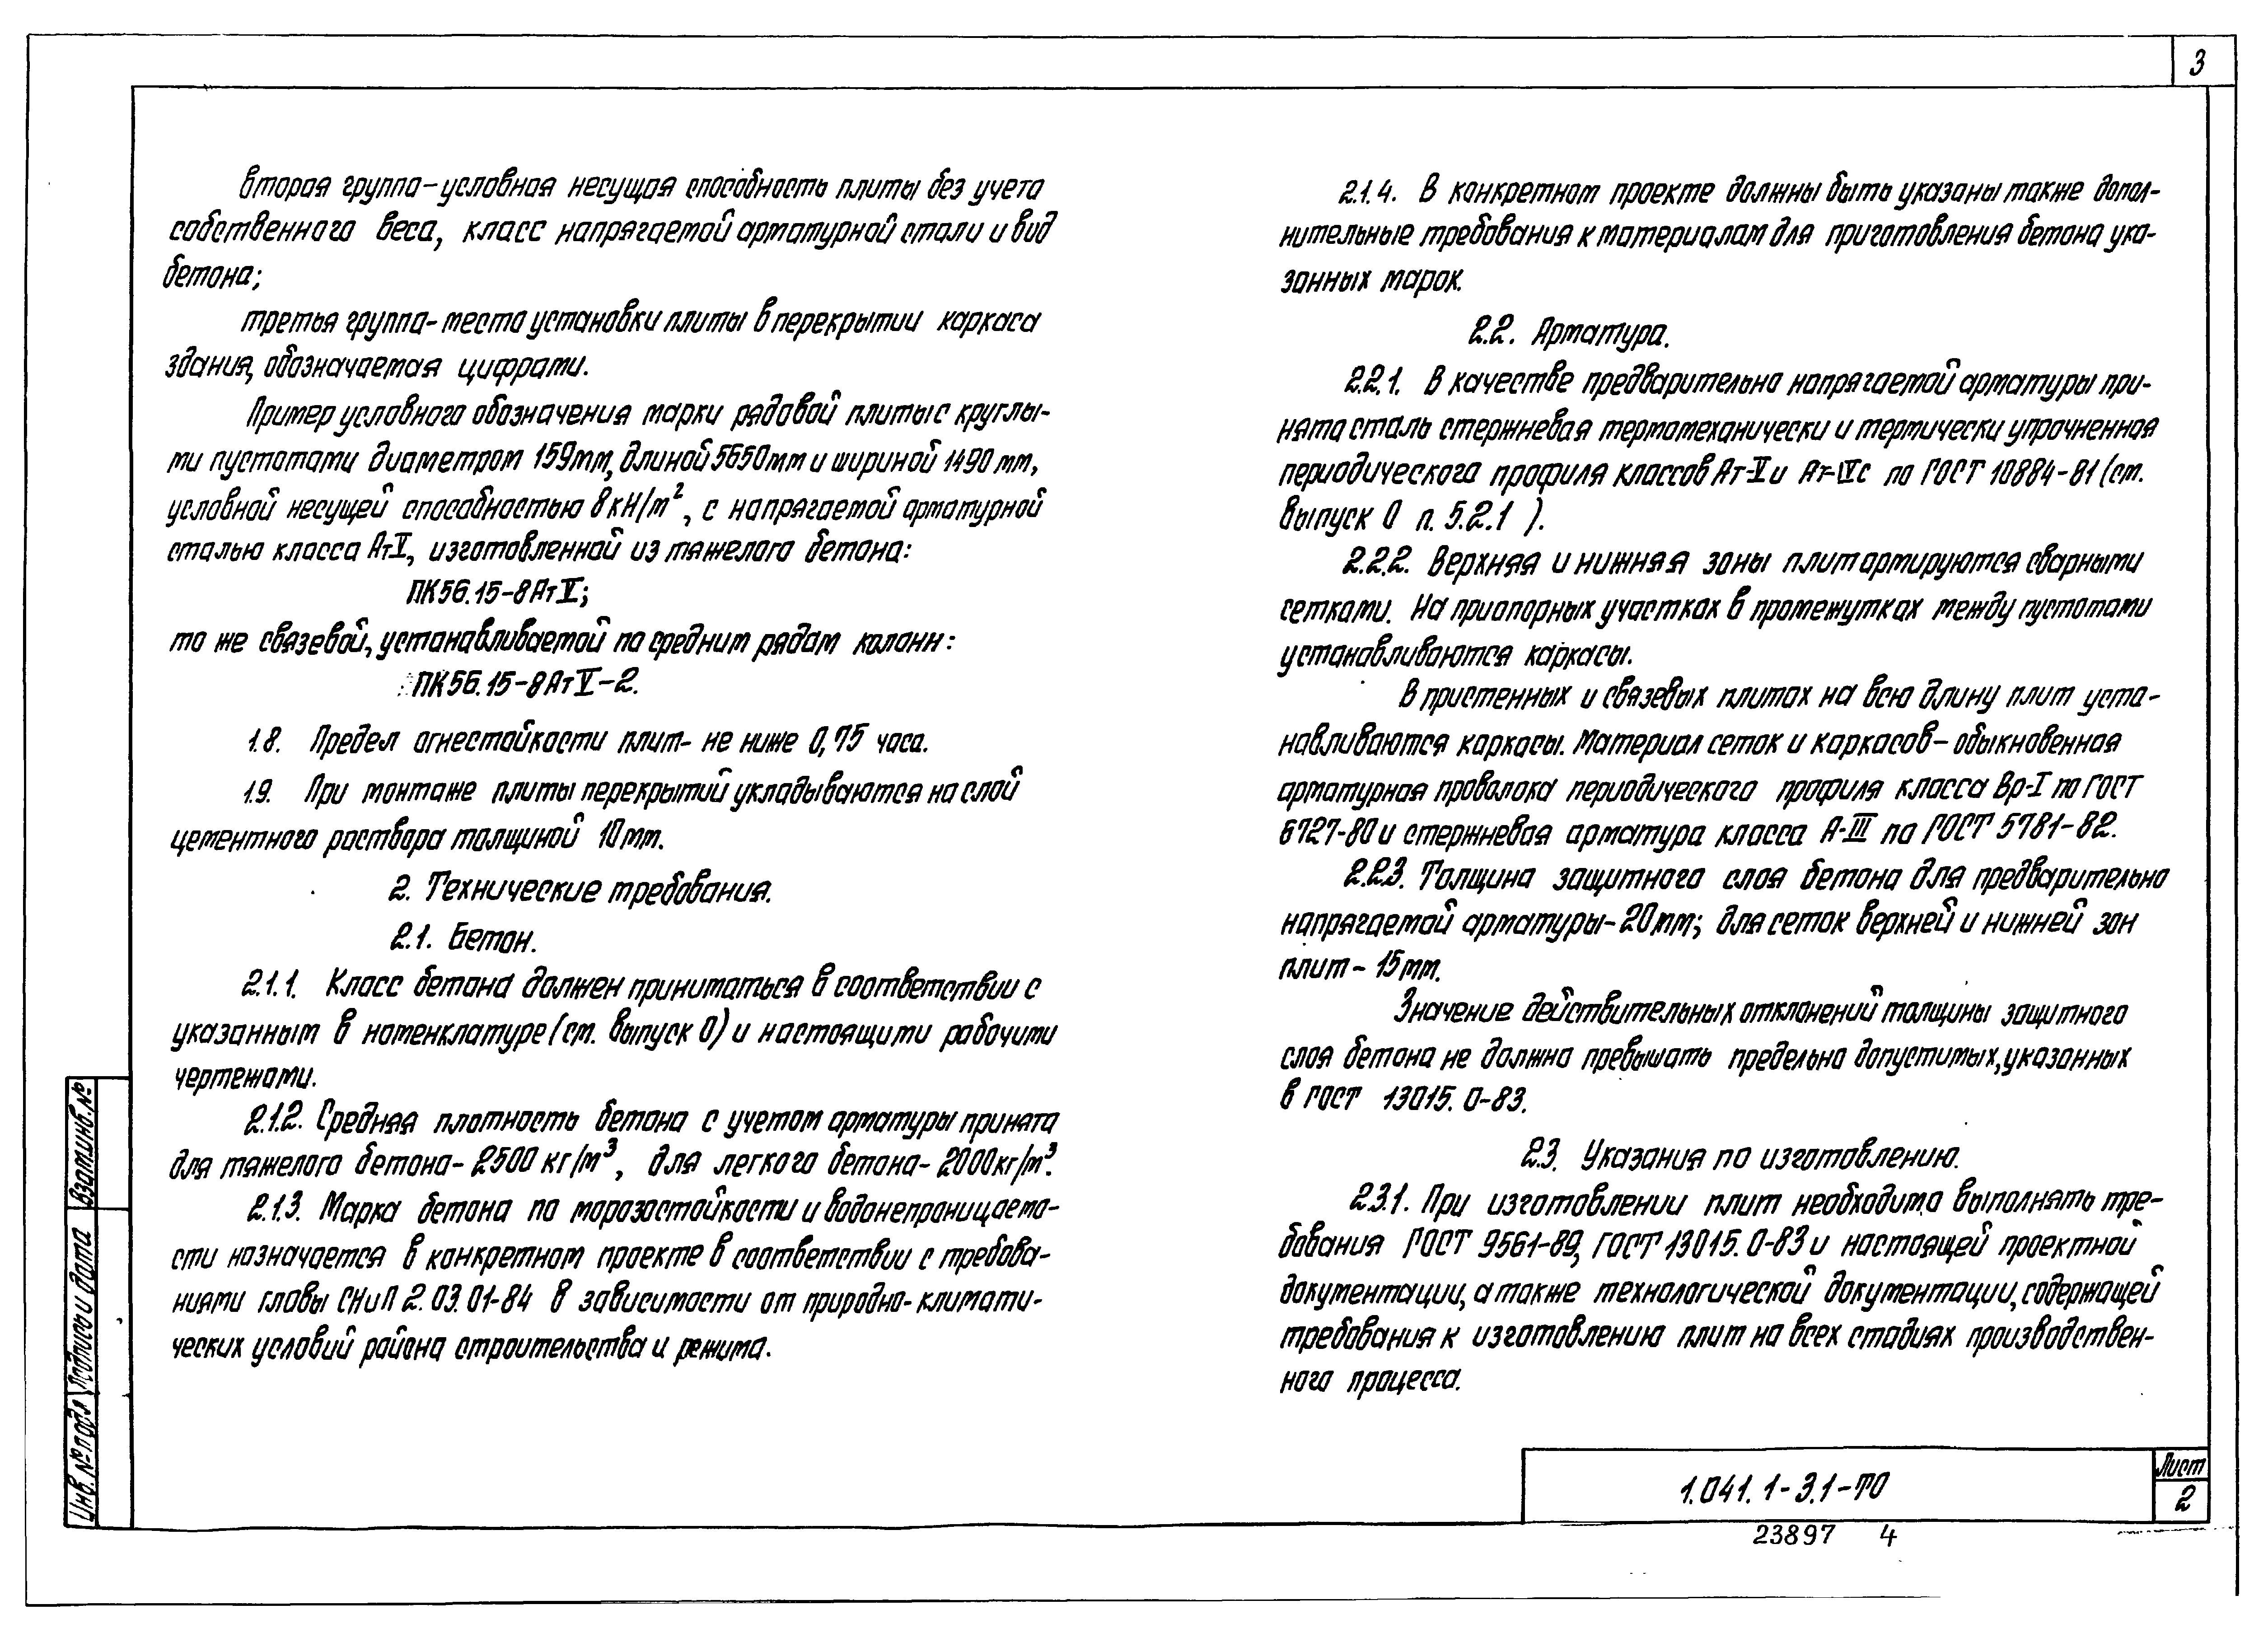 3
вторая группа-условная несущая способность плиты без учета
собственного веса, класс напрягаемой арматурной стали и вид
бетона;
третья группа-место установки плиты в перекрытии каркаса
здания, обозначаемая цифрами.
Пример условного обозначения марки рядовой плиты с круглы-
ми пустотами диаметром 159мм, длиной 5650мм и шириной 1490 мм,
условной несущей способностью 8кН/м², с напрягаемой арматурной
сталью класса АтV, изготовленной из тяжелого бетона:
ПК56.15-8АтV;
то же связевой, устанавливаемой по средним рядам колонн:
ПК56.15-8АтV-2.
1.8. Предел огнестойкости плит- не ниже 0,75 часа.
1.9. При монтаже плиты перекрытий укладываются на слой
цементного раствора толщиной 10мм.
2. Технические требования.
2.1. Бетон.
2.1.1. Класс бетона должен приниматься в соответствии с
указанным в номенклатуре (см. выпуск 0) и настоящими рабочими
чертежами.
2.1.2. Средняя плотность бетона с учетом арматуры принята
для тяжелого бетона- 2500 кг/м³, для легкого бетона- 2000кг/м³.
2.1.3. Марка бетона по морозостойкости и водонепроницаемо-
сти назначается в конкретном проекте в соответствии с требова-
ниями главы СНиП 2.03.01-84 в зависимости от природно-климати-
ческих условий района строительства и режима.
2.1.4. В конкретном проекте должны быть указаны также допол-
нительные требования к материалам для приготовления бетона ука-
занных марок.
2.2. Арматура.
2.2.1. В качестве предварительно напрягаемой арматуры при-
нята сталь стержневая термомеханически и термически упрочненная
периодического профиля классов Ат-V и Ат-IVС по ГОСТ 10884-81 (см.
выпуск 0 п. 5.2.1 ).
2.2.2. Верхняя и нижняя зоны плит армируются сварными
сетками. На приопорных участках в промежутках между пустотами
устанавливаются каркасы.
В пристенных и связевых плитах на всю длину плит уста-
навливаются каркасы. Материал сеток и каркасов- обыкновенная
арматурная проволока периодического профиля класса Вр-I по ГОСТ
6727-80 и стержневая арматура класса А-III по ГОСТ 5781-82.
2.2.3. Толщина защитного слоя бетона для предварительно
напрягаемой арматуры-20мм; для сеток верхней и нижней зон
плит- 15мм.
Значение действительных отклонений толщины защитного
слоя бетона не должно превышать предельно допустимых, указанных
в ГОСТ 13015.0-83.
2.3. Указания по изготовлению.
2.3.1. При изготовлении плит необходимо выполнять тре-
бования ГОСТ 9561-89, ГОСТ 13015.0-83 и настоящей проектной
документации, а также технологической документации, содержащей
требования к изготовлению плит на всех стадиях производствен-
ного процесса.
Взам.инв.№
Подпись и дата
Инв. № подл
1.041.1-3.1-ТО
Лист
2
23897 4